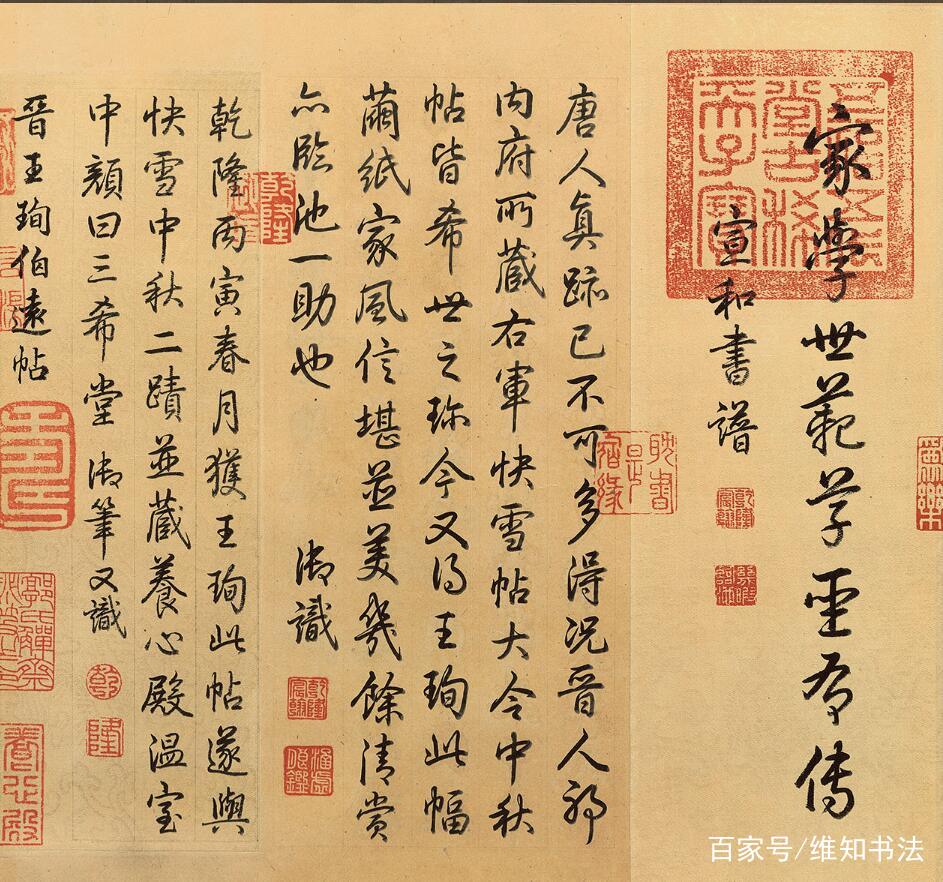 五福五代堂古稀天子寶
家學世範草聖有傳
宣和書譜
乾隆宸翰
唐人真跡已不可多得況晉人耶
內府所藏右軍快雪帖大令中秋
帖皆希世之珎今又得王珣此幅
繭紙家風信堪並美幾餘清賞
亦臨池一助也 御識
乾隆宸翰
乾隆丙寅春月獲王珣此帖遂與
快雪中秋二蹟並藏養心殿溫室
中顏曰三希堂 御筆又識
乾
隆
晉王珣伯遠帖
百家号/维知书法